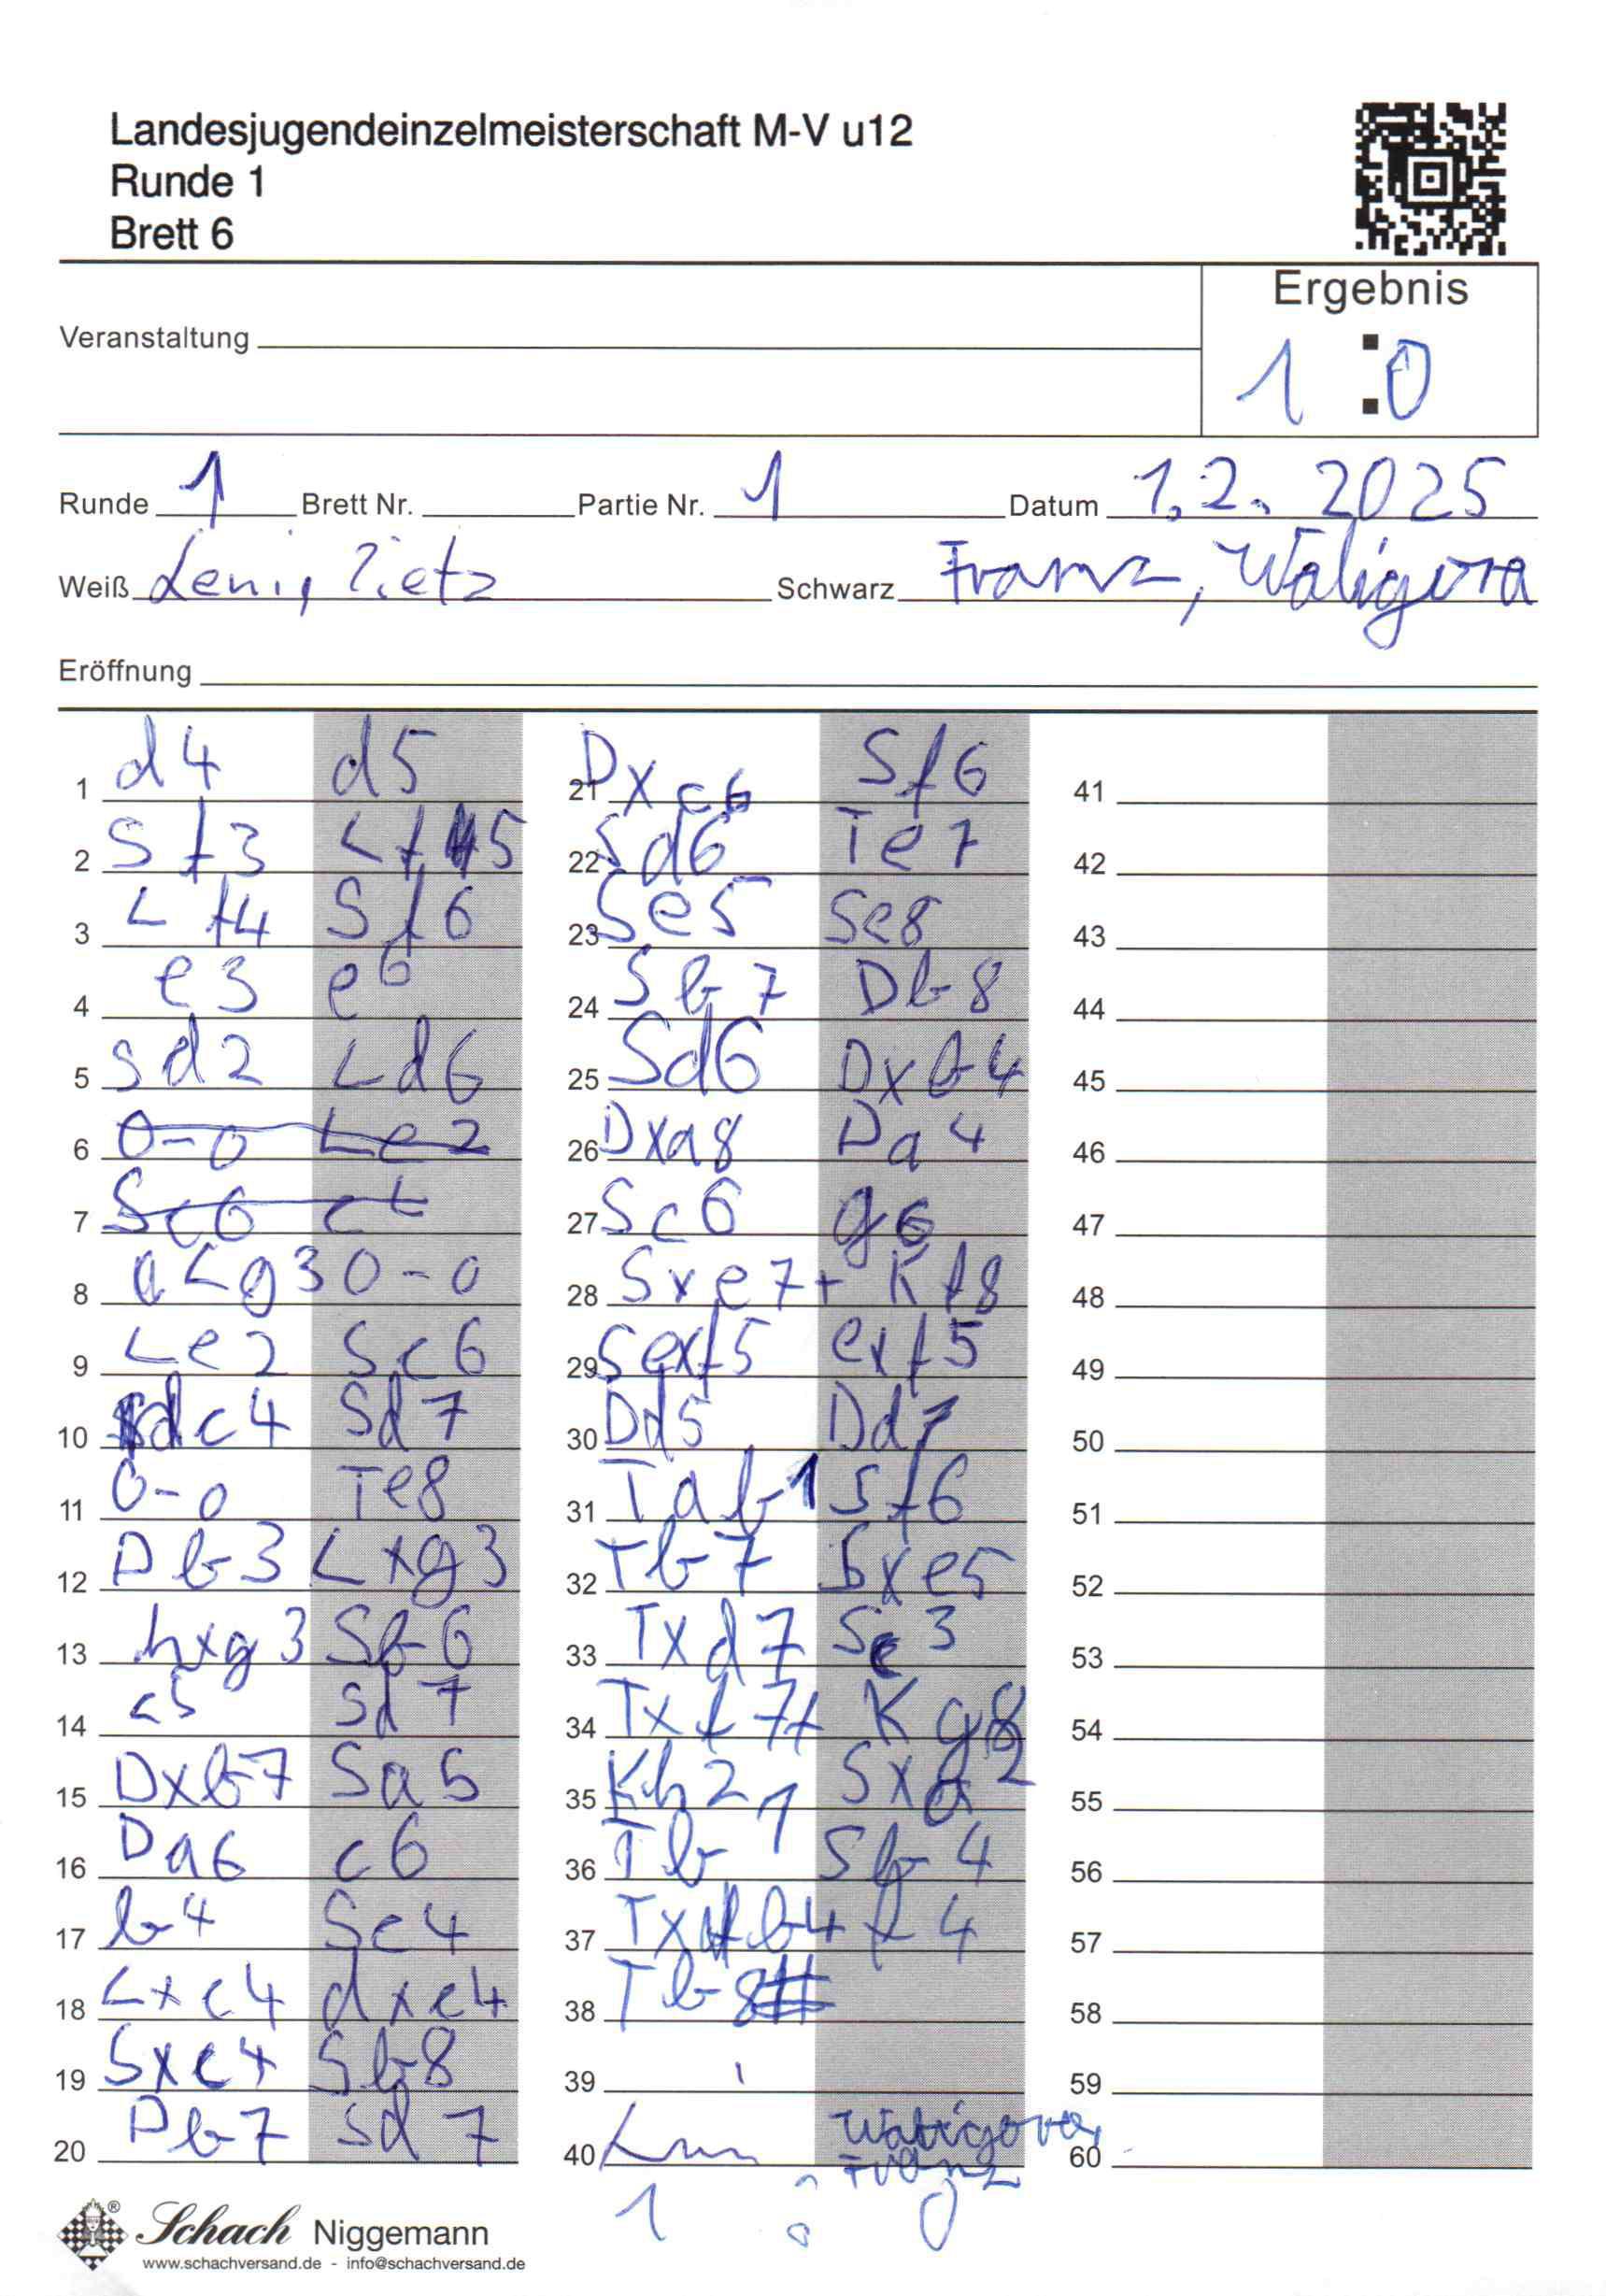 Landesjugendeinzelmeisterschaft M-V u12
Runde 1
Brett 6
Ergebnis
Veranstaltung
1 : 0
Runde 1 Brett Nr. Partie Nr. 1 Datum 1.2. 2025
Weiß Leni, Tietz Schwarz Franz, Waligora
Eröffnung
1 d4 d5
2 Sf3 Lf5
3 Lf4 Sf6
4 e3 e6
5 Sd2 Ld6
6 0-0 Le2
7 Sc6
8 Lg3 0-0
9 Le2 Sc6
10 dc4 Sd7
11 0-0 Te8
12 Db3 Lxg3
13 hxg3 Sb6
14 c5 Sd7
15 Dxb7 Sa5
16 Da6 c6
17 b4 Sc4
18 Lxc4 dxc4
19 Sxc4 Sb8
20 Db7 Sd7
21 Dxc6 Sf6
22 Sd6 Te7
23 Se5 Se8
24 Sb7 Db8
25 Sd6 Dxb4
26 Dxa8 Da4
27 Sc6 g6
28 Sxe7+ Kf8
29 Sexf5 exf5
30 Dd5 Dd7
31 Tab1 Sf6
32 Tb7 Sxe5
33 Txd7 Sc3
34 Txf7+ Kg8
35 Kh2 Sxa2
36 Tb1 Sb4
37 Txb4 f4
38 Tb8#
39
40 Waligora,
Franz
1 : 0
41
42
43
44
45
46
47
48
49
50
51
52
53
54
55
56
57
58
59
60
Schach Niggemann
www.schachversand.de - info@schachversand.de